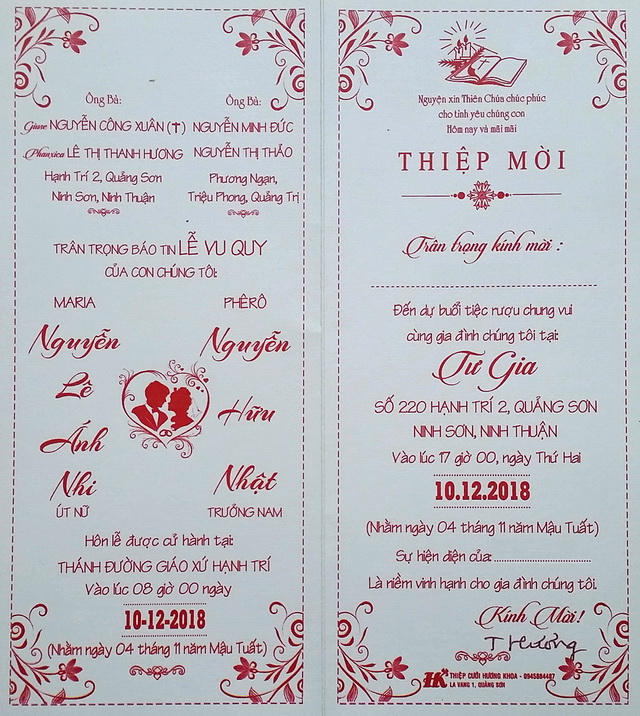 Ông Bà:
Giuse NGUYỄN CÔNG XUÂN (✝)
Phanxica LÊ THỊ THANH HƯƠNG
Hạnh Trí 2, Quảng Sơn
Ninh Sơn, Ninh Thuận
Ông Bà:
NGUYỄN MINH ĐỨC
NGUYỄN THỊ THẢO
Phương Ngạn,
Triệu Phong, Quảng Trị
TRÂN TRỌNG BÁO TIN LỄ VU QUY
CỦA CON CHÚNG TÔI:
MARIA
Nguyễn
Lê
Ánh
Nhi
ÚT NỮ
PHÊRÔ
Nguyễn
Hữu
Nhật
TRƯỞNG NAM
Hôn lễ được cử hành tại:
THÁNH ĐƯỜNG GIÁO XỨ HẠNH TRÍ
Vào lúc 08 giờ 00 ngày
10-12-2018
(Nhằm ngày 04 tháng 11 năm Mậu Tuất)
Nguyện xin Thiên Chúa chúc phúc
cho tình yêu chúng con
Hôm nay và mãi mãi
THIỆP MỜI
Trân trọng kính mời :
Đến dự buổi tiệc rượu chung vui
cùng gia đình chúng tôi tại:
Tư Gia
SỐ 220 HẠNH TRÍ 2, QUẢNG SƠN
NINH SƠN, NINH THUẬN
Vào lúc 17 giờ 00, ngày Thứ Hai
10.12.2018
(Nhằm ngày 04 tháng 11 năm Mậu Tuất)
Sự hiện diện của:
Là niềm vinh hạnh cho gia đình chúng tôi.
Kính Mời!
T Hương
HK THIỆP CƯỚI HƯƠNG KHOA - 0945884487
LA VANG 1, QUẢNG SƠN